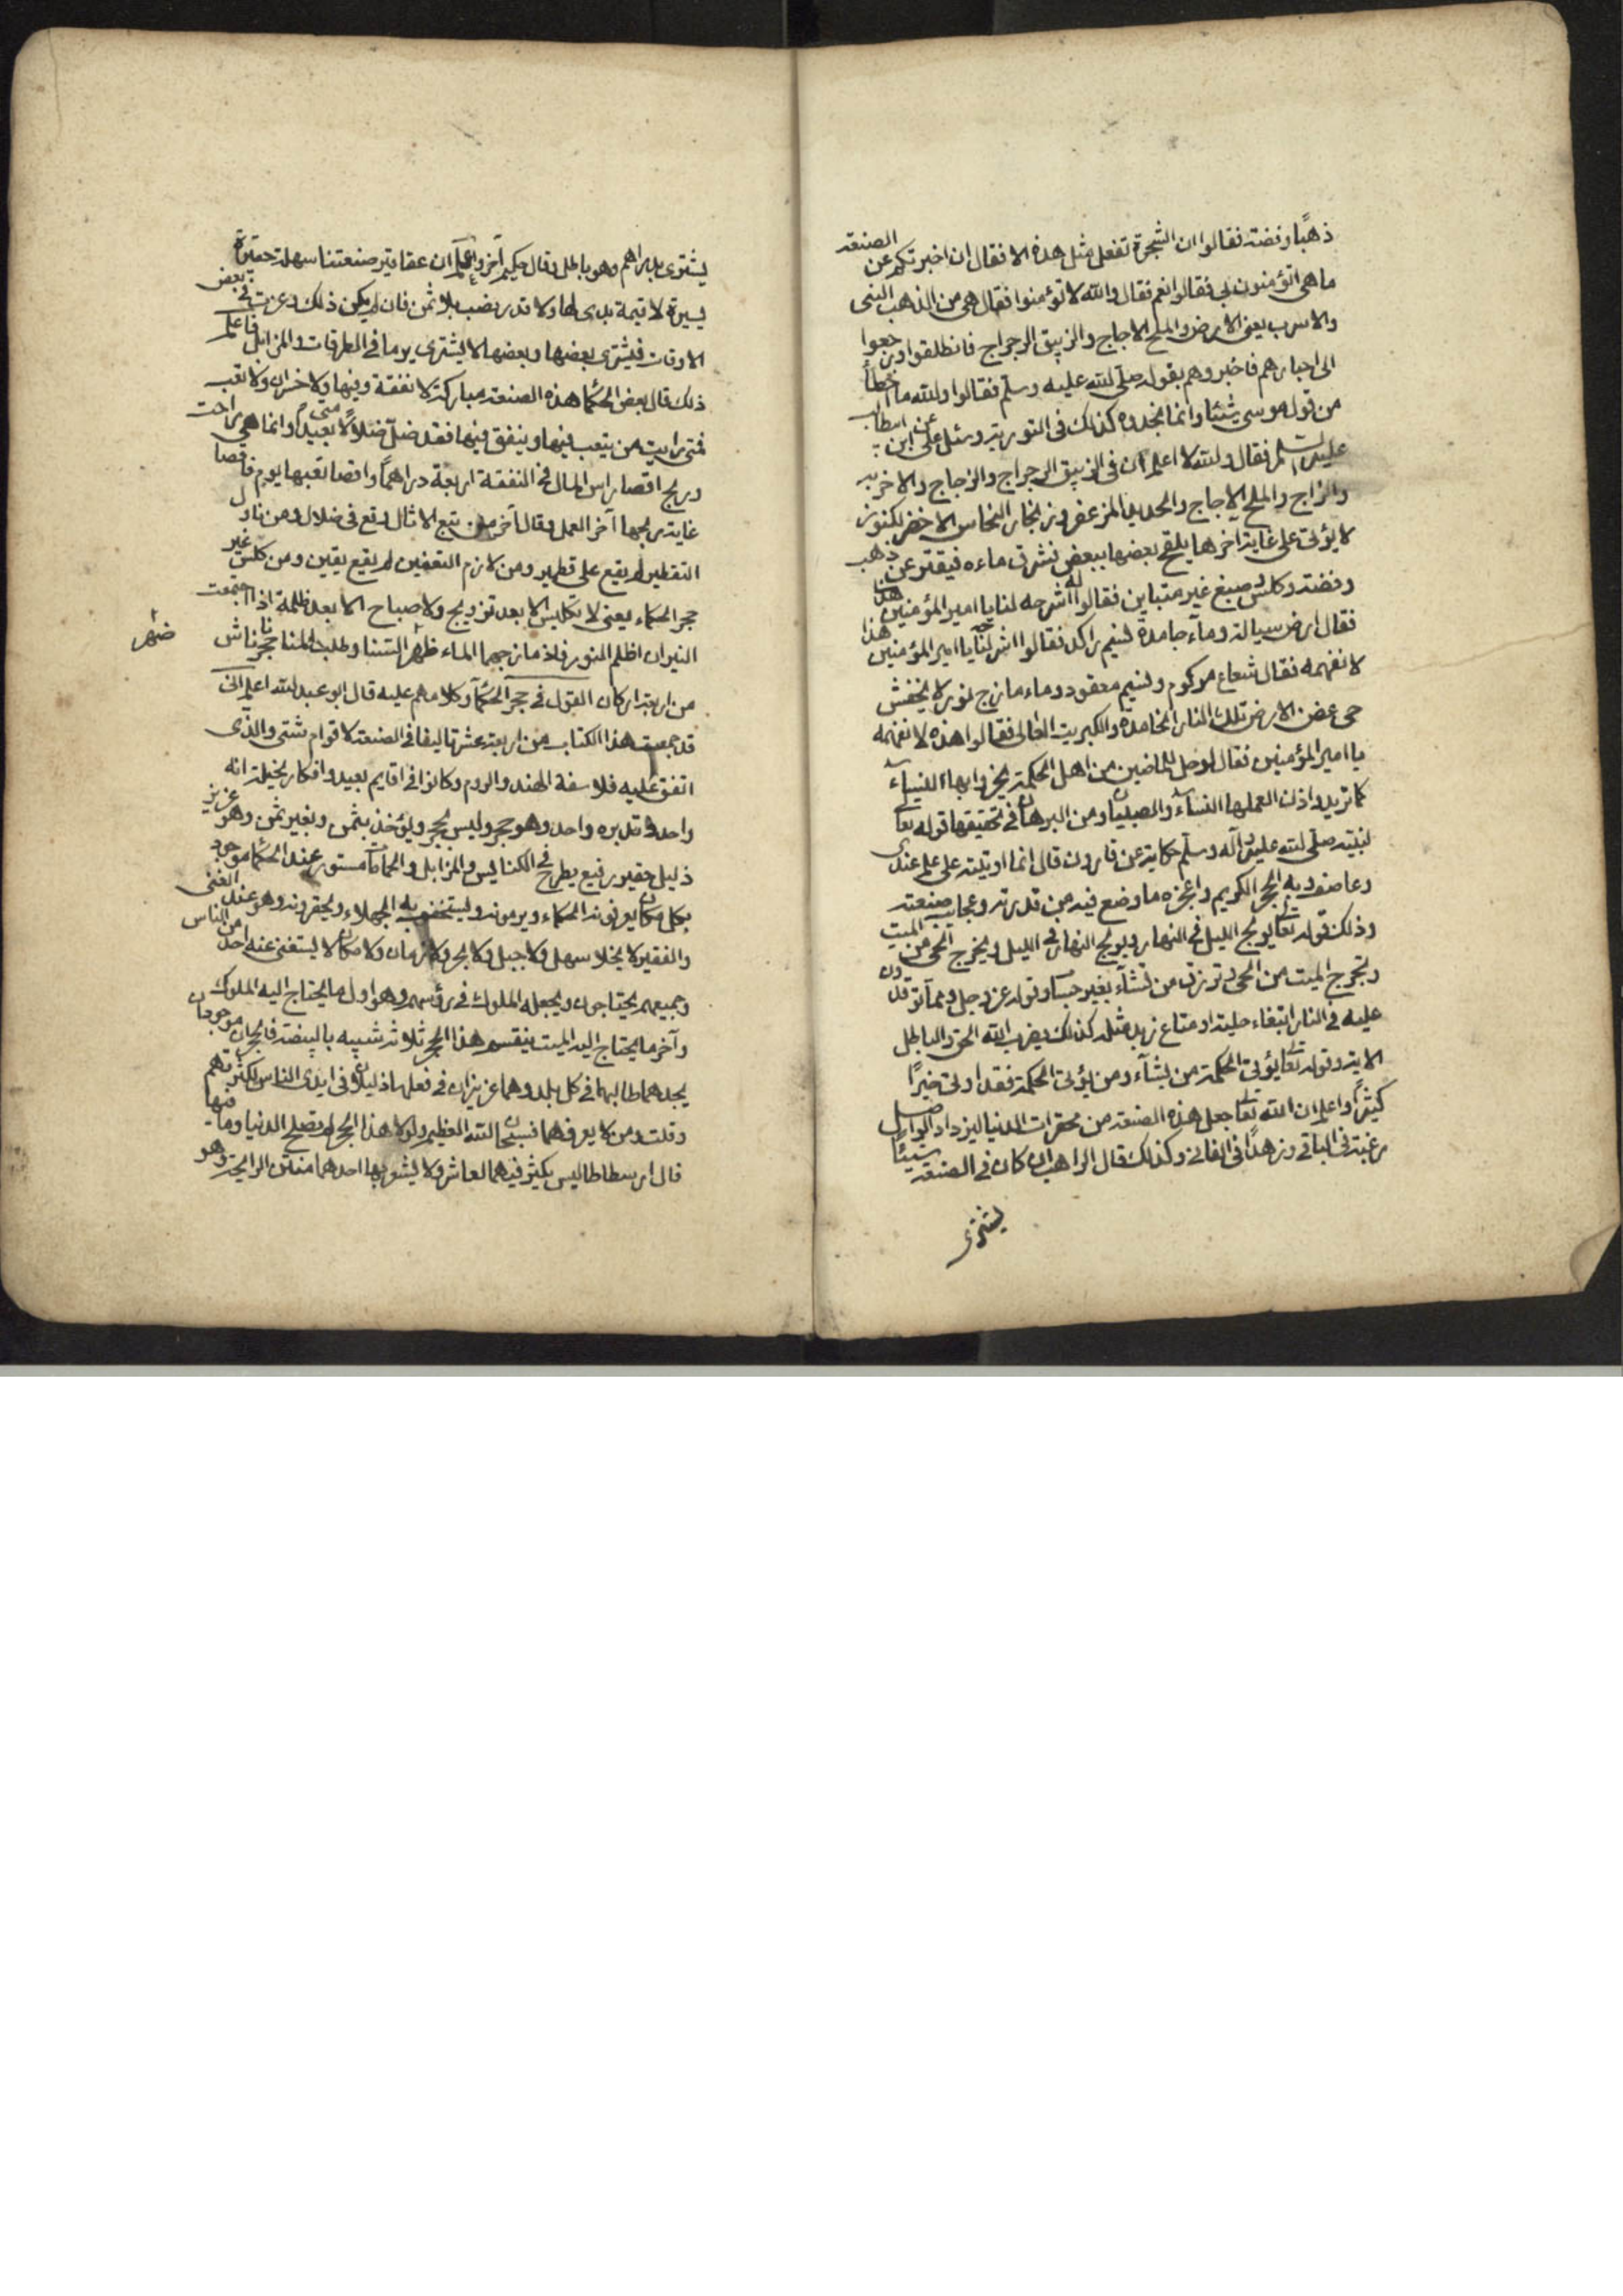 ذهبًا وفضة فقالوا ان الشجرة تفعل مثل هذه الا فقال ان اخبرتكم عن الصنعة
ما هى اتؤمنون بى فقالوا نعم فقال والله لا تؤمنوا فقال هى من الذهب البنى
والاسرب يعنى الارض والملح الاجاج والزيبق الرجراج فانطلقوا ورجعوا
الى احبارهم فاخبروهم بقوله صلى الله عليه وسلم فقالوا والله ما اخطأ
من قول موسى شيئا وانما نجدوه كذلك فى التورية وسئل على ابن ابيطالب
عليه السلم فقال والله لا اعلم ان فى الزيبق الرجراج والزجاج والاخر
والزاج والملح الاجاج والحديد المزعفر وزنجار النحاس الاخضر لكنوز
لا يؤتى على غاية اخرها يلقح بعضها ببعض نشرق ماءه فيفتر عن ذهب
وفضة وكلس وصبغ غير متباين فقالوا له اشرحه لنا يا امير المؤمنين هذا
فقال ارض سيالة وماء جامدة نسيم راكد فقالوا اشرح لنا يا امير المؤمنين هذا
لا نفهمه فقال شعاع مركوم ونسيم معقود وماء مازج نور لا
حى الارض تلك النار الخامدة والكبريت الغالى فقالوا هذه لا نفهمه
يا امير المؤمنين فقال لوحل للماضين من اهل الحكمة يخبروا بها النساء
كما تريد واذن لعملها النساء والصبيان ومن البرهان فى تحقيقها قوله تعا
لنبيه صلى الله عليه وآله وسلم حكاية عن قارون قال انما اوتيته على علم عندى
وما صفو به الحجر الكريم واعجزه ما وضع فيه من قدرته وعجايب صنعته
وذلك قوله تعا يولج الليل فى النهار ويولج النهار فى الليل ويخرج الحى من الميت
وتخرج الميت من الحى وترزق من تشآء بغير حساب وقوله عز وجل ومما توقدون
عليه فى النار ابتغاء حلية او متاع زبد مثله كذلك يضرب الله الحق والباطل
الاية وقوله تعا يؤتى الحكمة من يشآء ومن يؤتى الحكمة فقد اوتى خيرًا
كثيرًا واعلم ان الله تعا جعل هذه الصنعة من محقرات الدنيا ليزداد الواصل
رغبة فى الباقى وزهدًا فى الفانى وكذلك قال الراهب ان كان فى الصنعة شيئًا
يشترى
يشترى بدراهم وهو باطل وقال حكيم آخر واعلم ان عقاقير صنعتنا سهلة حقيرة
يسيرة لا قيمة لها ولا قدر بلا ثمن فان لم يكن ذلك وعزت فى بعض
الاوقات فيشترى بعضها وبعضها لا يشترى يوما فى الطرقات والمزابل فاعلم
ذلك قال بعض الحكما هذه الصنعة مباركة لا نفقة وفيها ولا خسران ولا تعب
فمتى رايت من يتعب فيها وينفق فيها فقد ضلّ ضلالًا بعيدًا وانما هى راحت
وربح اقصا راس المال فى النفقة اربعة دراهمًا واقصا تعبها يوم فاقصا
غاية ربحها آخر العمل وقال آخر من تبع الامثال وقع فى ضلال ومن ناول
التقطير لم يقع على قطمير ومن لازم التعفين لم يقع يقين ومن كلس غير
حجر الحكماء يعنى لا تكليس الا بعد تزويج ولا صباح الا بعد ظلمة اذا اجتمعت
النيران اظلم النور فاذ مازجهما الماء ظهر السنا وطلب المنا حجرنا ناش
ضهر
من اربعة اركان القول فى حجر الحكما وكلامهم عليه قال ابو عبد الله اعلم انى
قد جمعت هذا الكتاب من اربعة عشر تاليفا فى الصنعة لاقوام شتى والذى
اتفق عليه فلاسفة الهند والروم وكانوا فى اقاليم بعيد وافكار انه
واحد وتدبره واحد وهو حجر وليس بحجر ويؤخذ بثمن وبغير ثمن وهو عزيز
ذليل حقير رفيع يطرح فى الكنايس والمزابل والحمامات مستور عند الحكما موجود
بكل مكان يعرفونه الحكماء ويرمونه ويستخفو به الجهلاء ويحقرونه وهو عند الغنى
والفقير لا يخلا سهل ولا جبل ولا بحر ولا زمان ولا مكان لا يستغنى عنه احد من الناس
وجميعهم يحتاجون ويجعله الملوك فى رؤسهم وهو اول ما يحتاج اليه الملوك
وآخر ما يحتاج اليه الميت ينقسم هذا الحجر ثلاثه شبيه بالبيضة فالحجران موجودان
يجدهما طالبهما فى كل بلد وهما عزيزان فى فعلها ذليلان وفى ايدى الناس لكثرتهم
وقلت ومن لا يعرفهما فسبحان الله العظيم ولولا هذا الحجر لم تصلح الدنيا وما فيها
قال ارسطاطاليس يكثر فيهما ولا احدهما منتن الرايحة وهو